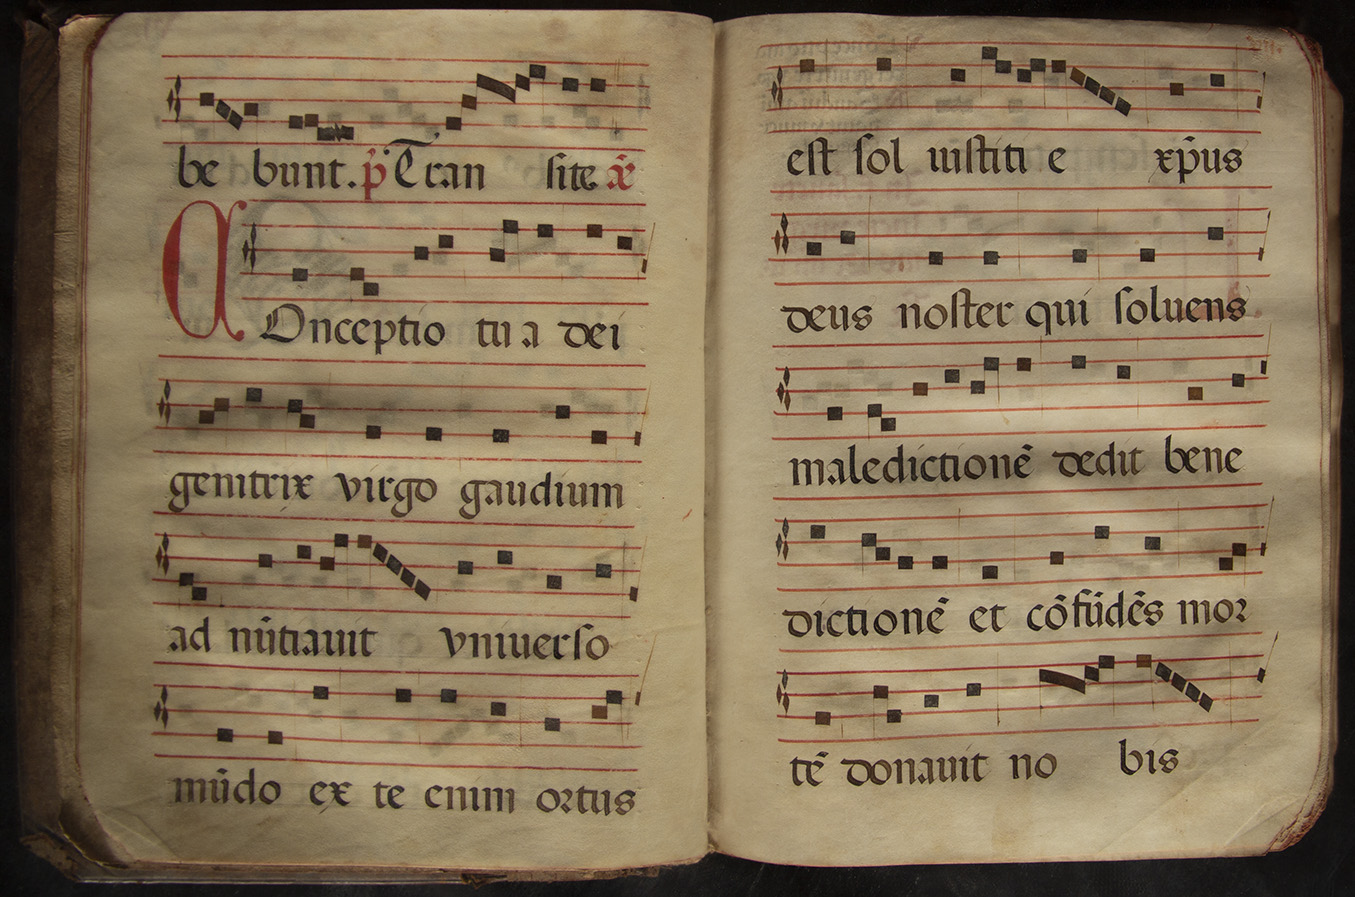 be bunt. p̃ Tran site añ
COnceptio tu a dei
genitrix virgo gaudium
ad nũtiauit vniuerso
mũdo ex te enim ortus
est sol iustiti e xp̃us
deus noster qui soluens
maledictionẽ dedit bene
dictionẽ et cõfũdẽs mor
tẽ donauit no bis